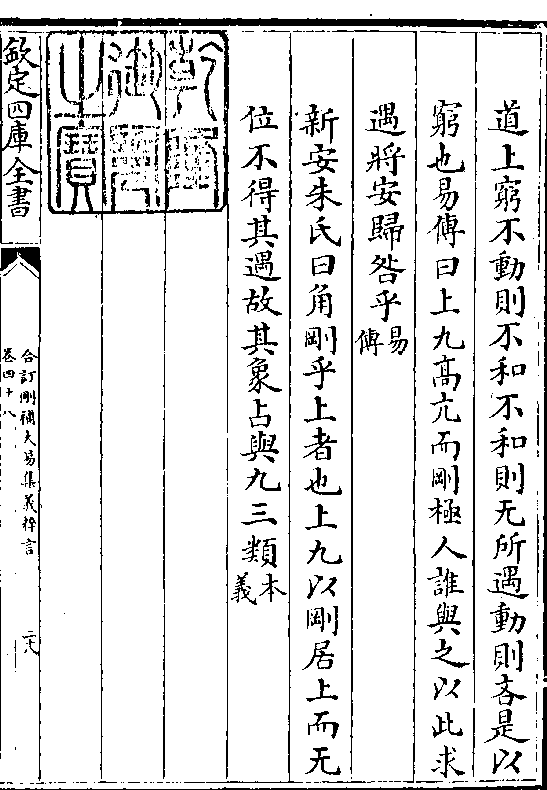 道上窮不動則不和不和則无所遇動則吝是以
窮也易傳曰上九髙亢而剛極人誰與之以此求
遇將安歸咎乎易傳
新安朱氏曰角剛乎上者也上九以剛居上而无
位不得其遇故其象占與九三類本義
乾隆御覽之寶
欽定四庫全書
合訂刪補大易集義粹言
卷四十八
二十八